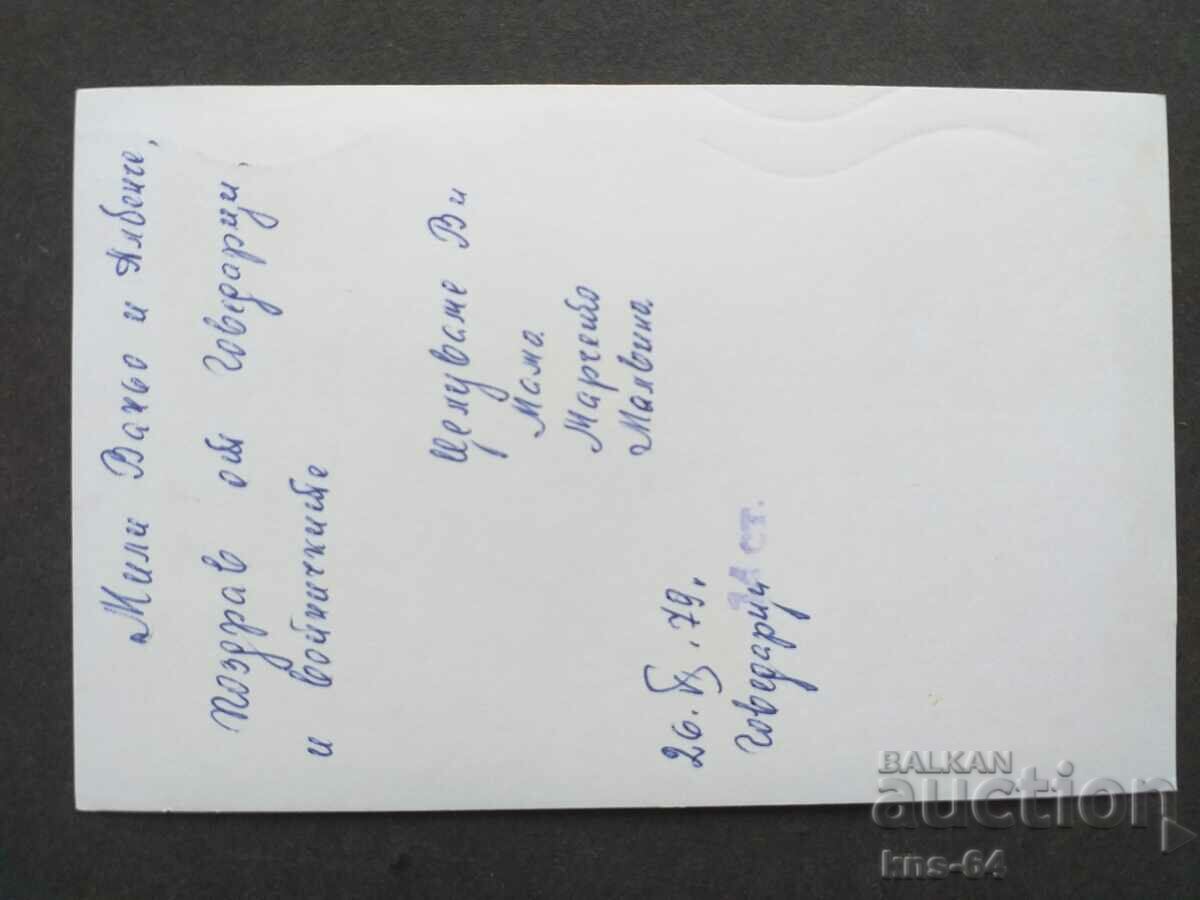 Мили Ваньо и Албенче,
поздрав от Говедарци,
и войничките
Целуваме Ви
Мама
Марчето
Малвина
26. IX. 79.
Говедарци
ЗА СТ.
BALKAN
auction
kns-64